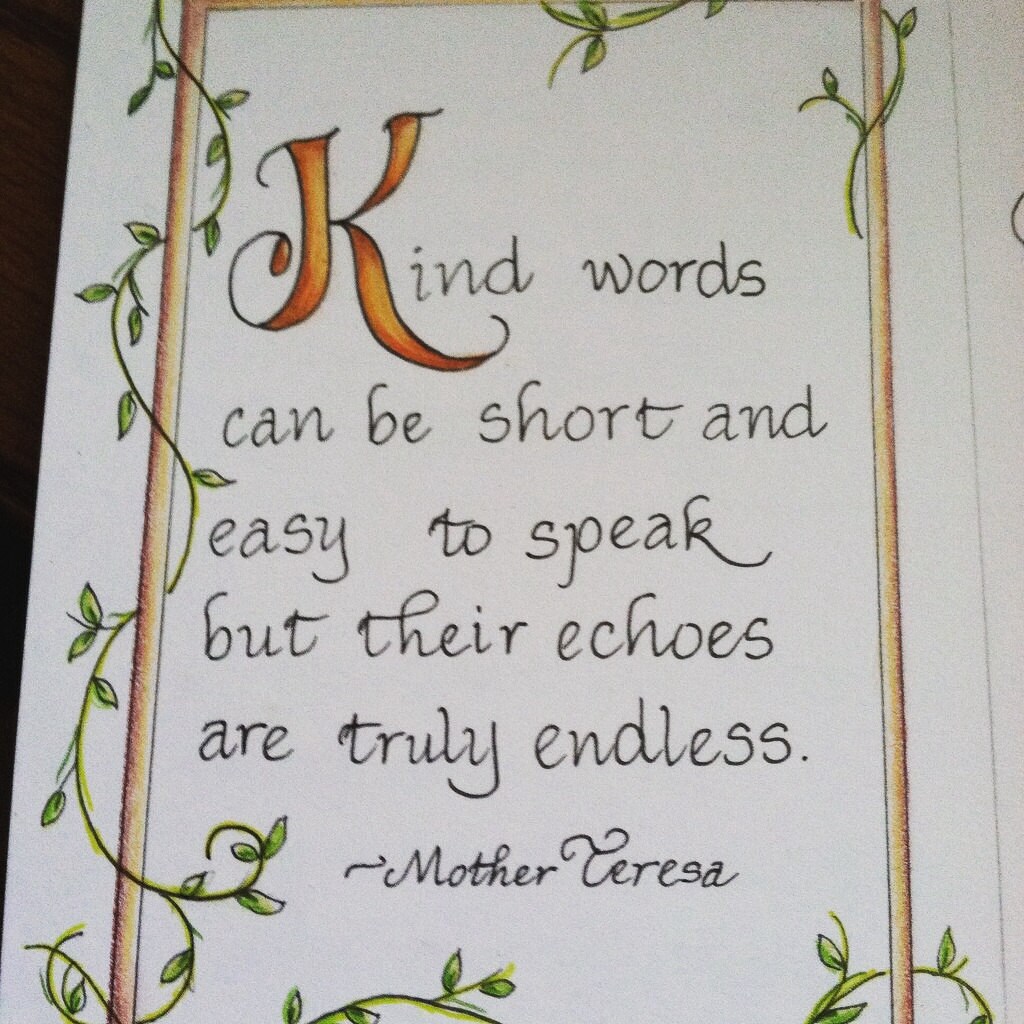 Kind words
can be short and
easy to speak
but their echoes
are truly endless.
~Mother Teresa